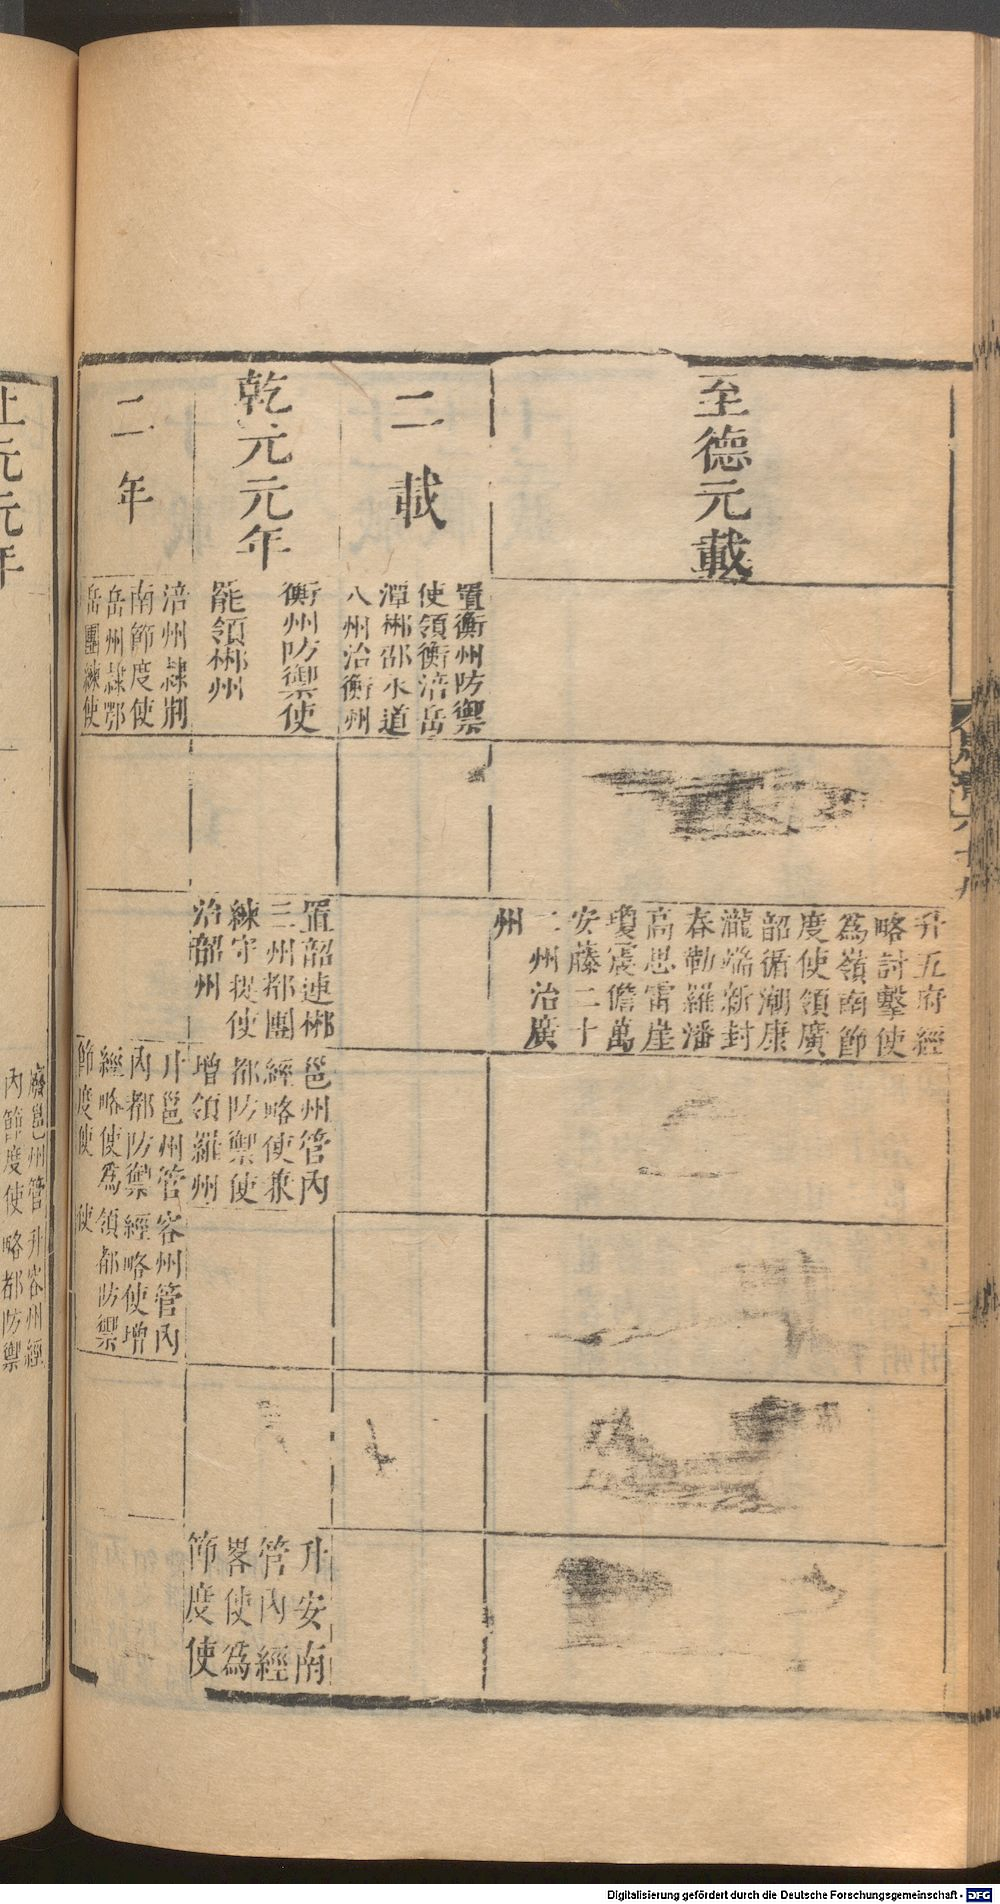 至德元載
升五府經
略討擊使
爲嶺南節
度使領廣
韶循潮康
瀧端新封
春勒羅潘
高思雷崖
瓊震儋萬
安藤二十
二州治廣
州
二載
置衡州防禦
使領衡涪岳
潭郴邵永道
八州治衡州
乾元元年
衡州防禦使
罷領郴州
置韶連郴
三州都團
練守捉使
治韶州
邕州管內
經略使兼
都防禦使
增領羅州
升安南
管內經
畧使爲
節度使
二年
涪州隷荆
南節度使
岳州隷鄂
岳團練使
升邕州管
內都防禦
經略使爲
節度使
容州管內
經略使增
領都防禦
使
上元元年
廢邕州管
內節度使
升容州經
略都防禦
Digitalisierung gefördert durch die Deutsche Forschungsgemeinschaft - DFG